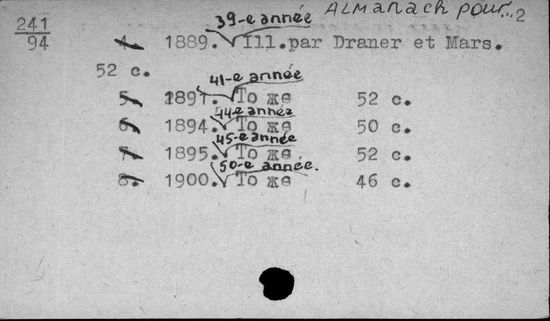 Almanach pour...2
241
94
39-e année
4 1889. Ill.par Draner et Mars.
52 с.
41-e année
5. 1891. То же 52 с.
44-e année
6. 1894. То же 50 с.
45-e année
7. 1895. То же 52 с.
50-e année.
8. 1900. То же 46 с.